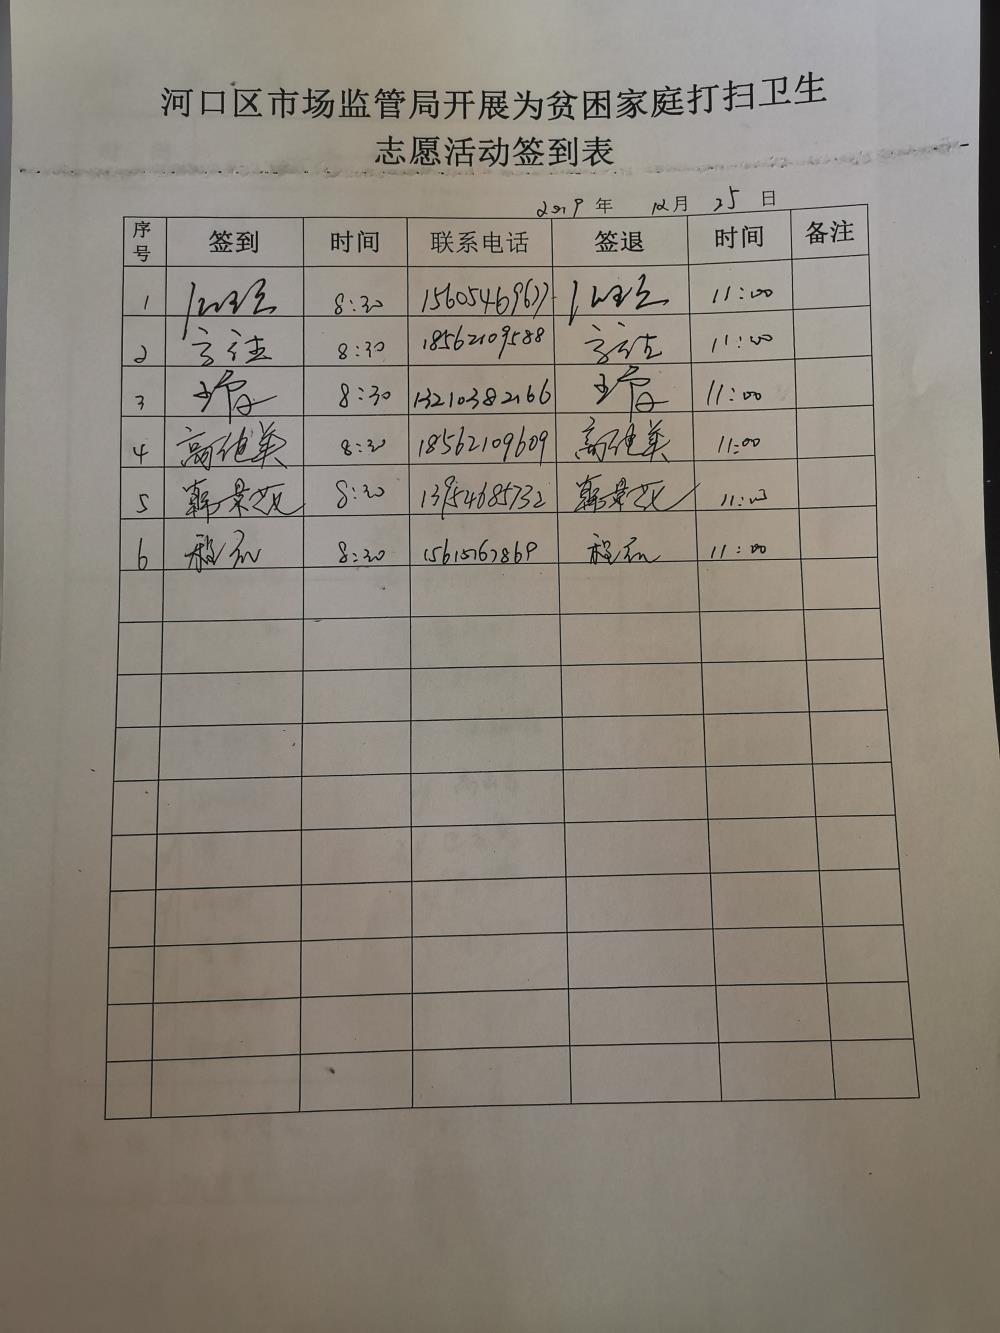 河口区市场监管局开展为贫困家庭打扫卫生
志愿活动签到表
2019年 12月 25日
序号 签到 时间 联系电话 签退 时间 备注
1 8:30 15605469677 11:00
2 8:30 18562109588 11:00
3 8:30 13210382166 11:00
4 8:30 18562109609 11:00
5 韩景芝 8:30 13954685732 韩景芝 11:00
6 8:30 15615767869 11:00